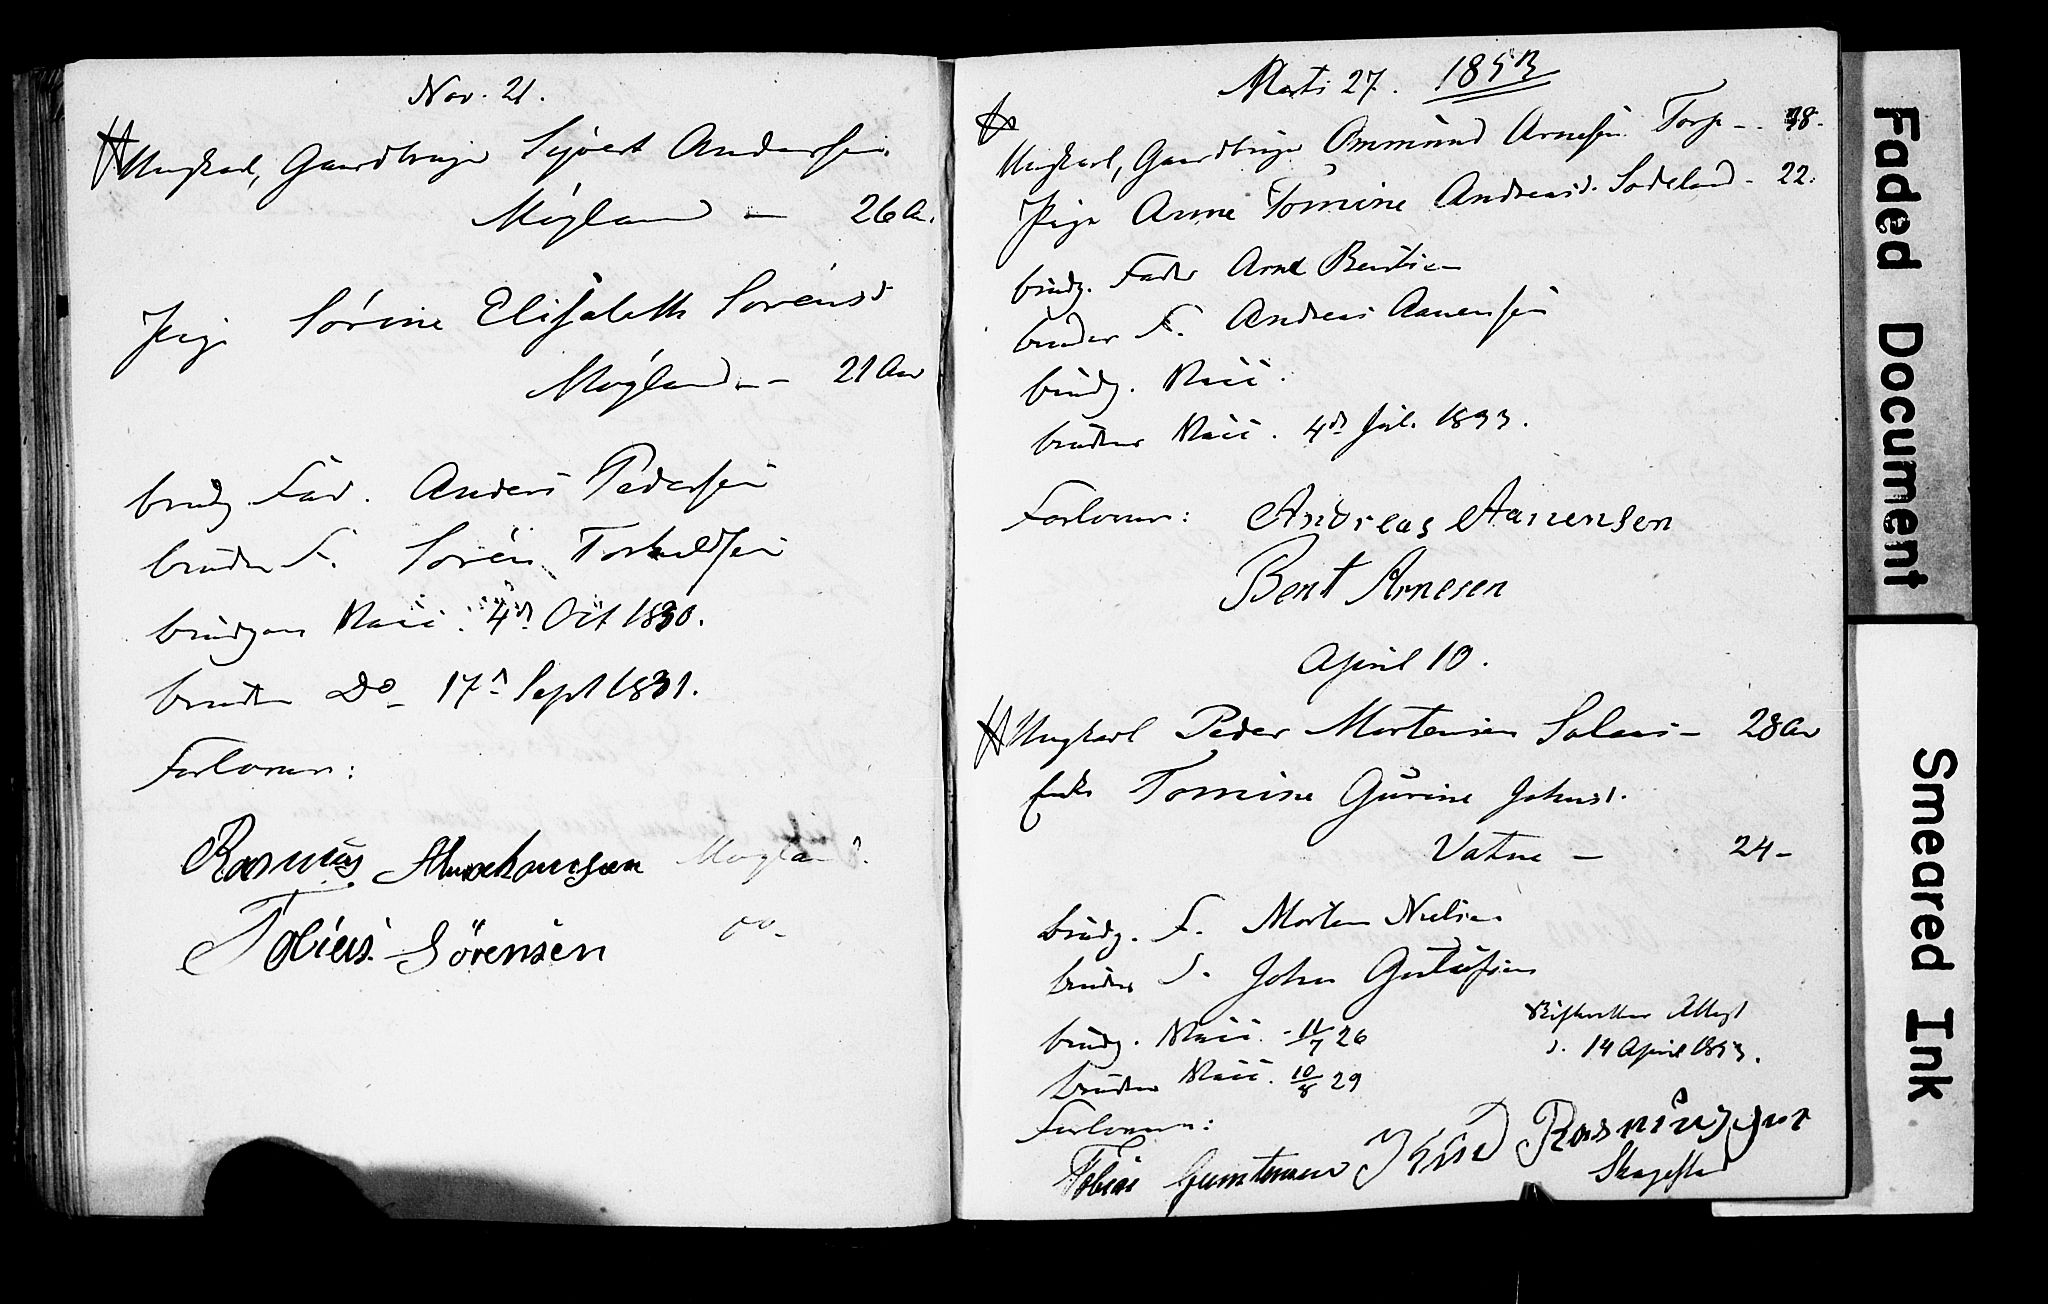 Nov. 21.
Ungkarl, Gaardbruger Sigvert Andersen
Møgland — 26 Aar.
Pige Sørine Elisabeth Sørensd
Møgland — 21 Aar
brudg. Fad. Anders Pedersen
bruden F. Søren Torkildsen
brudgom Vacc. 4de Oct 1830.
bruden Do 17de Sept 1831.
Forlovere:
Rasmus Abrahamsen Møgland
Tobias Sørensen do-
Marti 27. 1853
Ungkarl, Gaardbruger Ommund Arnesen Torp - 38.
Pige Anne Tomine Andreasd. Sodeland - 22.
brudg. Fader Arne Bentsen
bruden F. Andreas Aanensen
brudg. Vacc.
bruden Vacc. 4de Jul. 1833.
Forlovere: Andreas Aanensen
Bent Arnesen
April 10.
Ungkarl Peder Mortensen Solaas - 28 Aar
Enke Tomine Gurine Johnsd.
Vatne — 24 -
brudg. F. Morten Nielsen
bruden F. John Gustafsen
brudg. Vacc. 11/7 26
bruden Vacc. 10/8 29
Skifteretten Attest
d. 14 April 1853.
Forlovere:
Tobias Gumtensen Knud Rasmusson
Skagestad
Faded Document
Smeared Ink